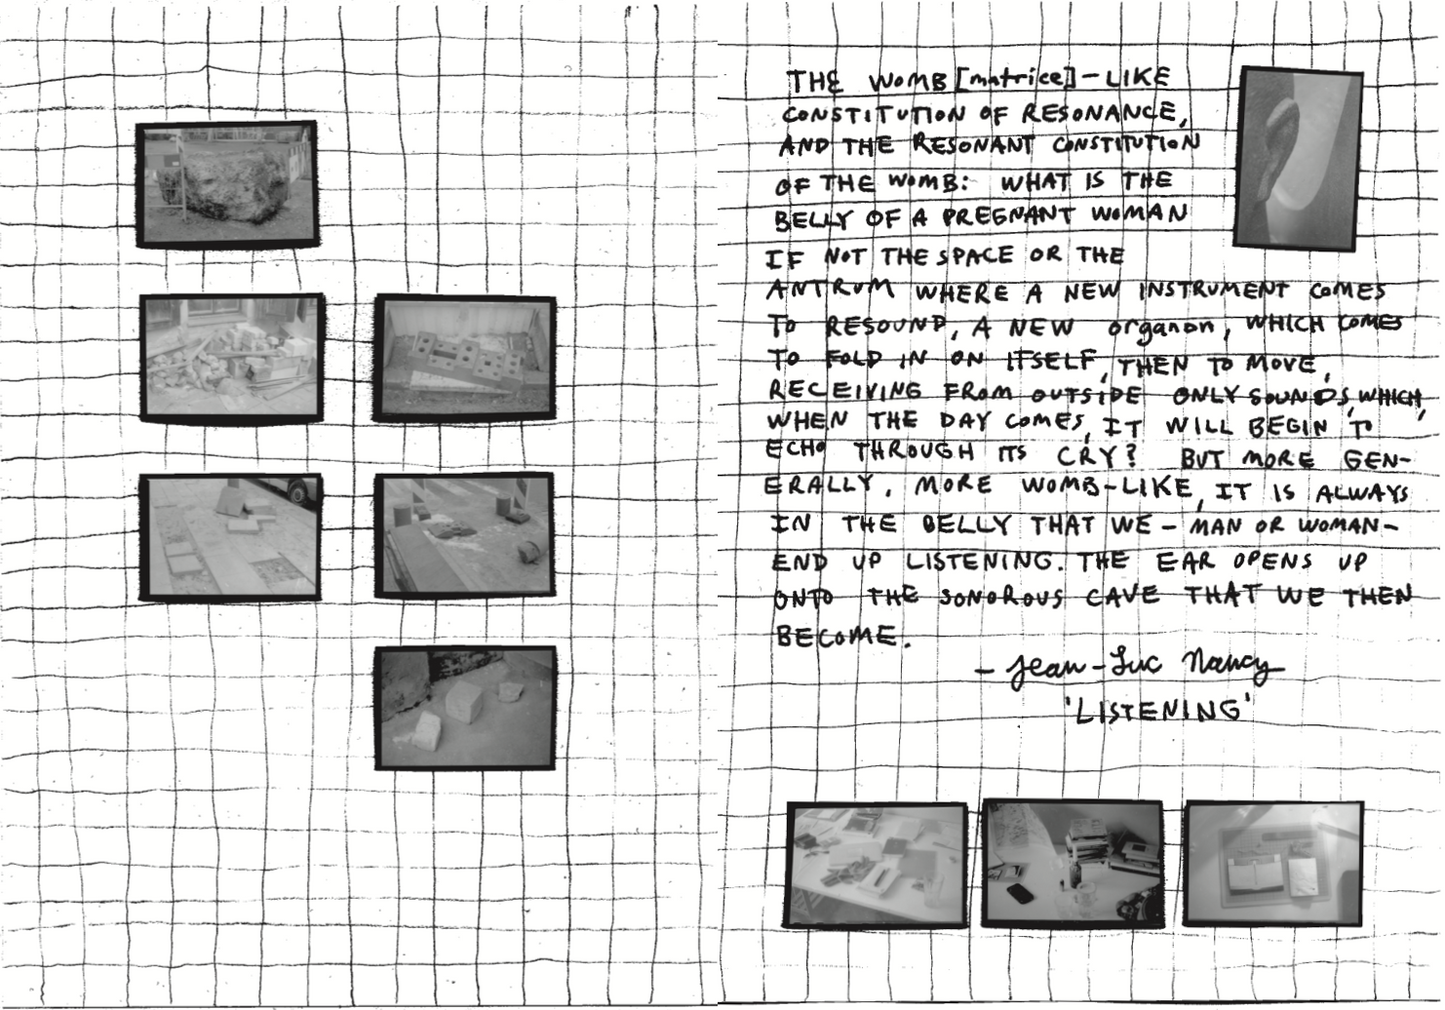 THE WOMB [matrice] - LIKE
CONSTITUTION OF RESONANCE,
AND THE RESONANT CONSTITUTION
OF THE WOMB: WHAT IS THE
BELLY OF A PREGNANT WOMAN
IF NOT THE SPACE OR THE
ANTRUM WHERE A NEW INSTRUMENT COMES
TO RESOUND, A NEW organon, WHICH COMES
TO FOLD IN ON ITSELF, THEN TO MOVE,
RECEIVING FROM OUTSIDE ONLY SOUNDS, WHICH,
WHEN THE DAY COMES, IT WILL BEGIN TO
ECHO THROUGH ITS CRY? BUT MORE GEN-
ERALLY, MORE WOMB-LIKE, IT IS ALWAYS
IN THE BELLY THAT WE - MAN OR WOMAN -
END UP LISTENING. THE EAR OPENS UP
ONTO THE SONOROUS CAVE THAT WE THEN
BECOME.
- Jean-Luc Nancy
'LISTENING'